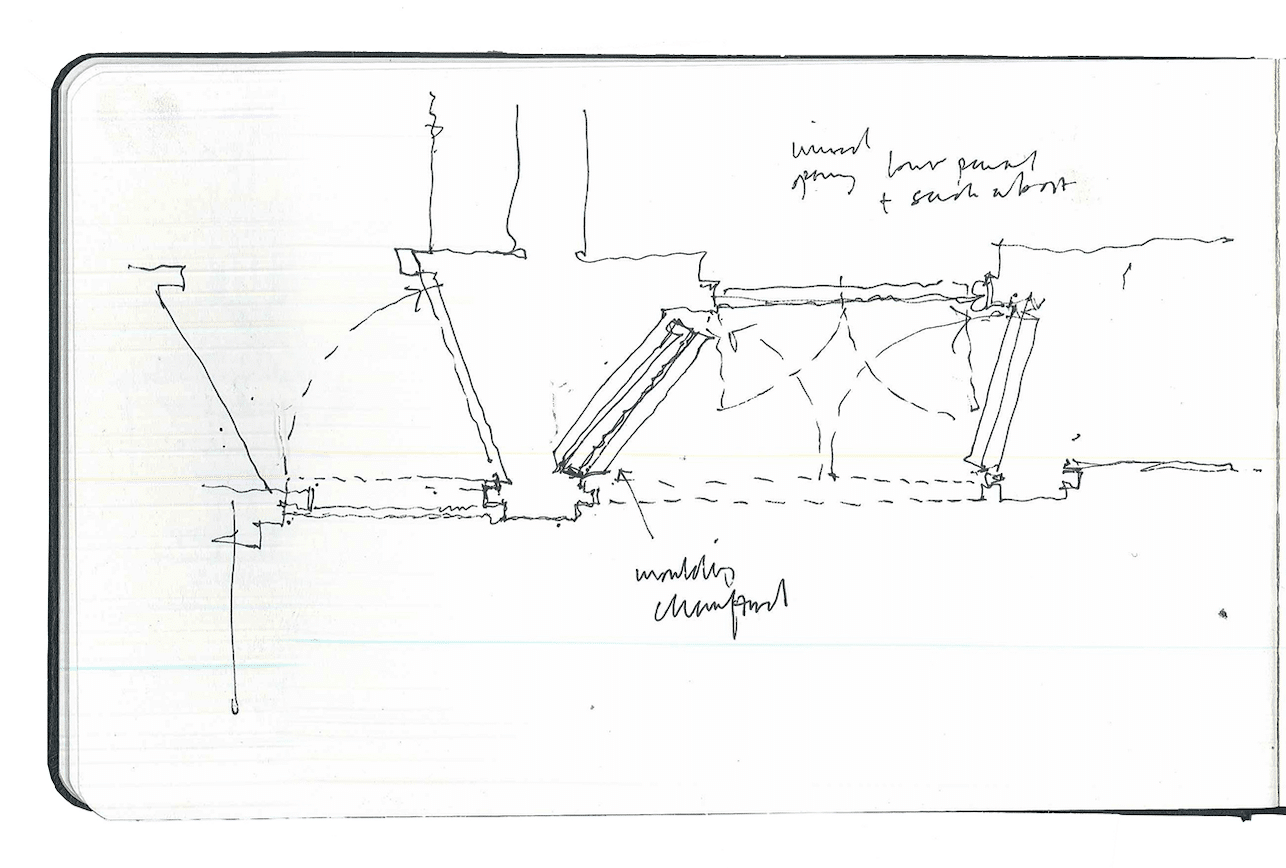 inward
opening
lower panel
+ sash
moulding
chamfered